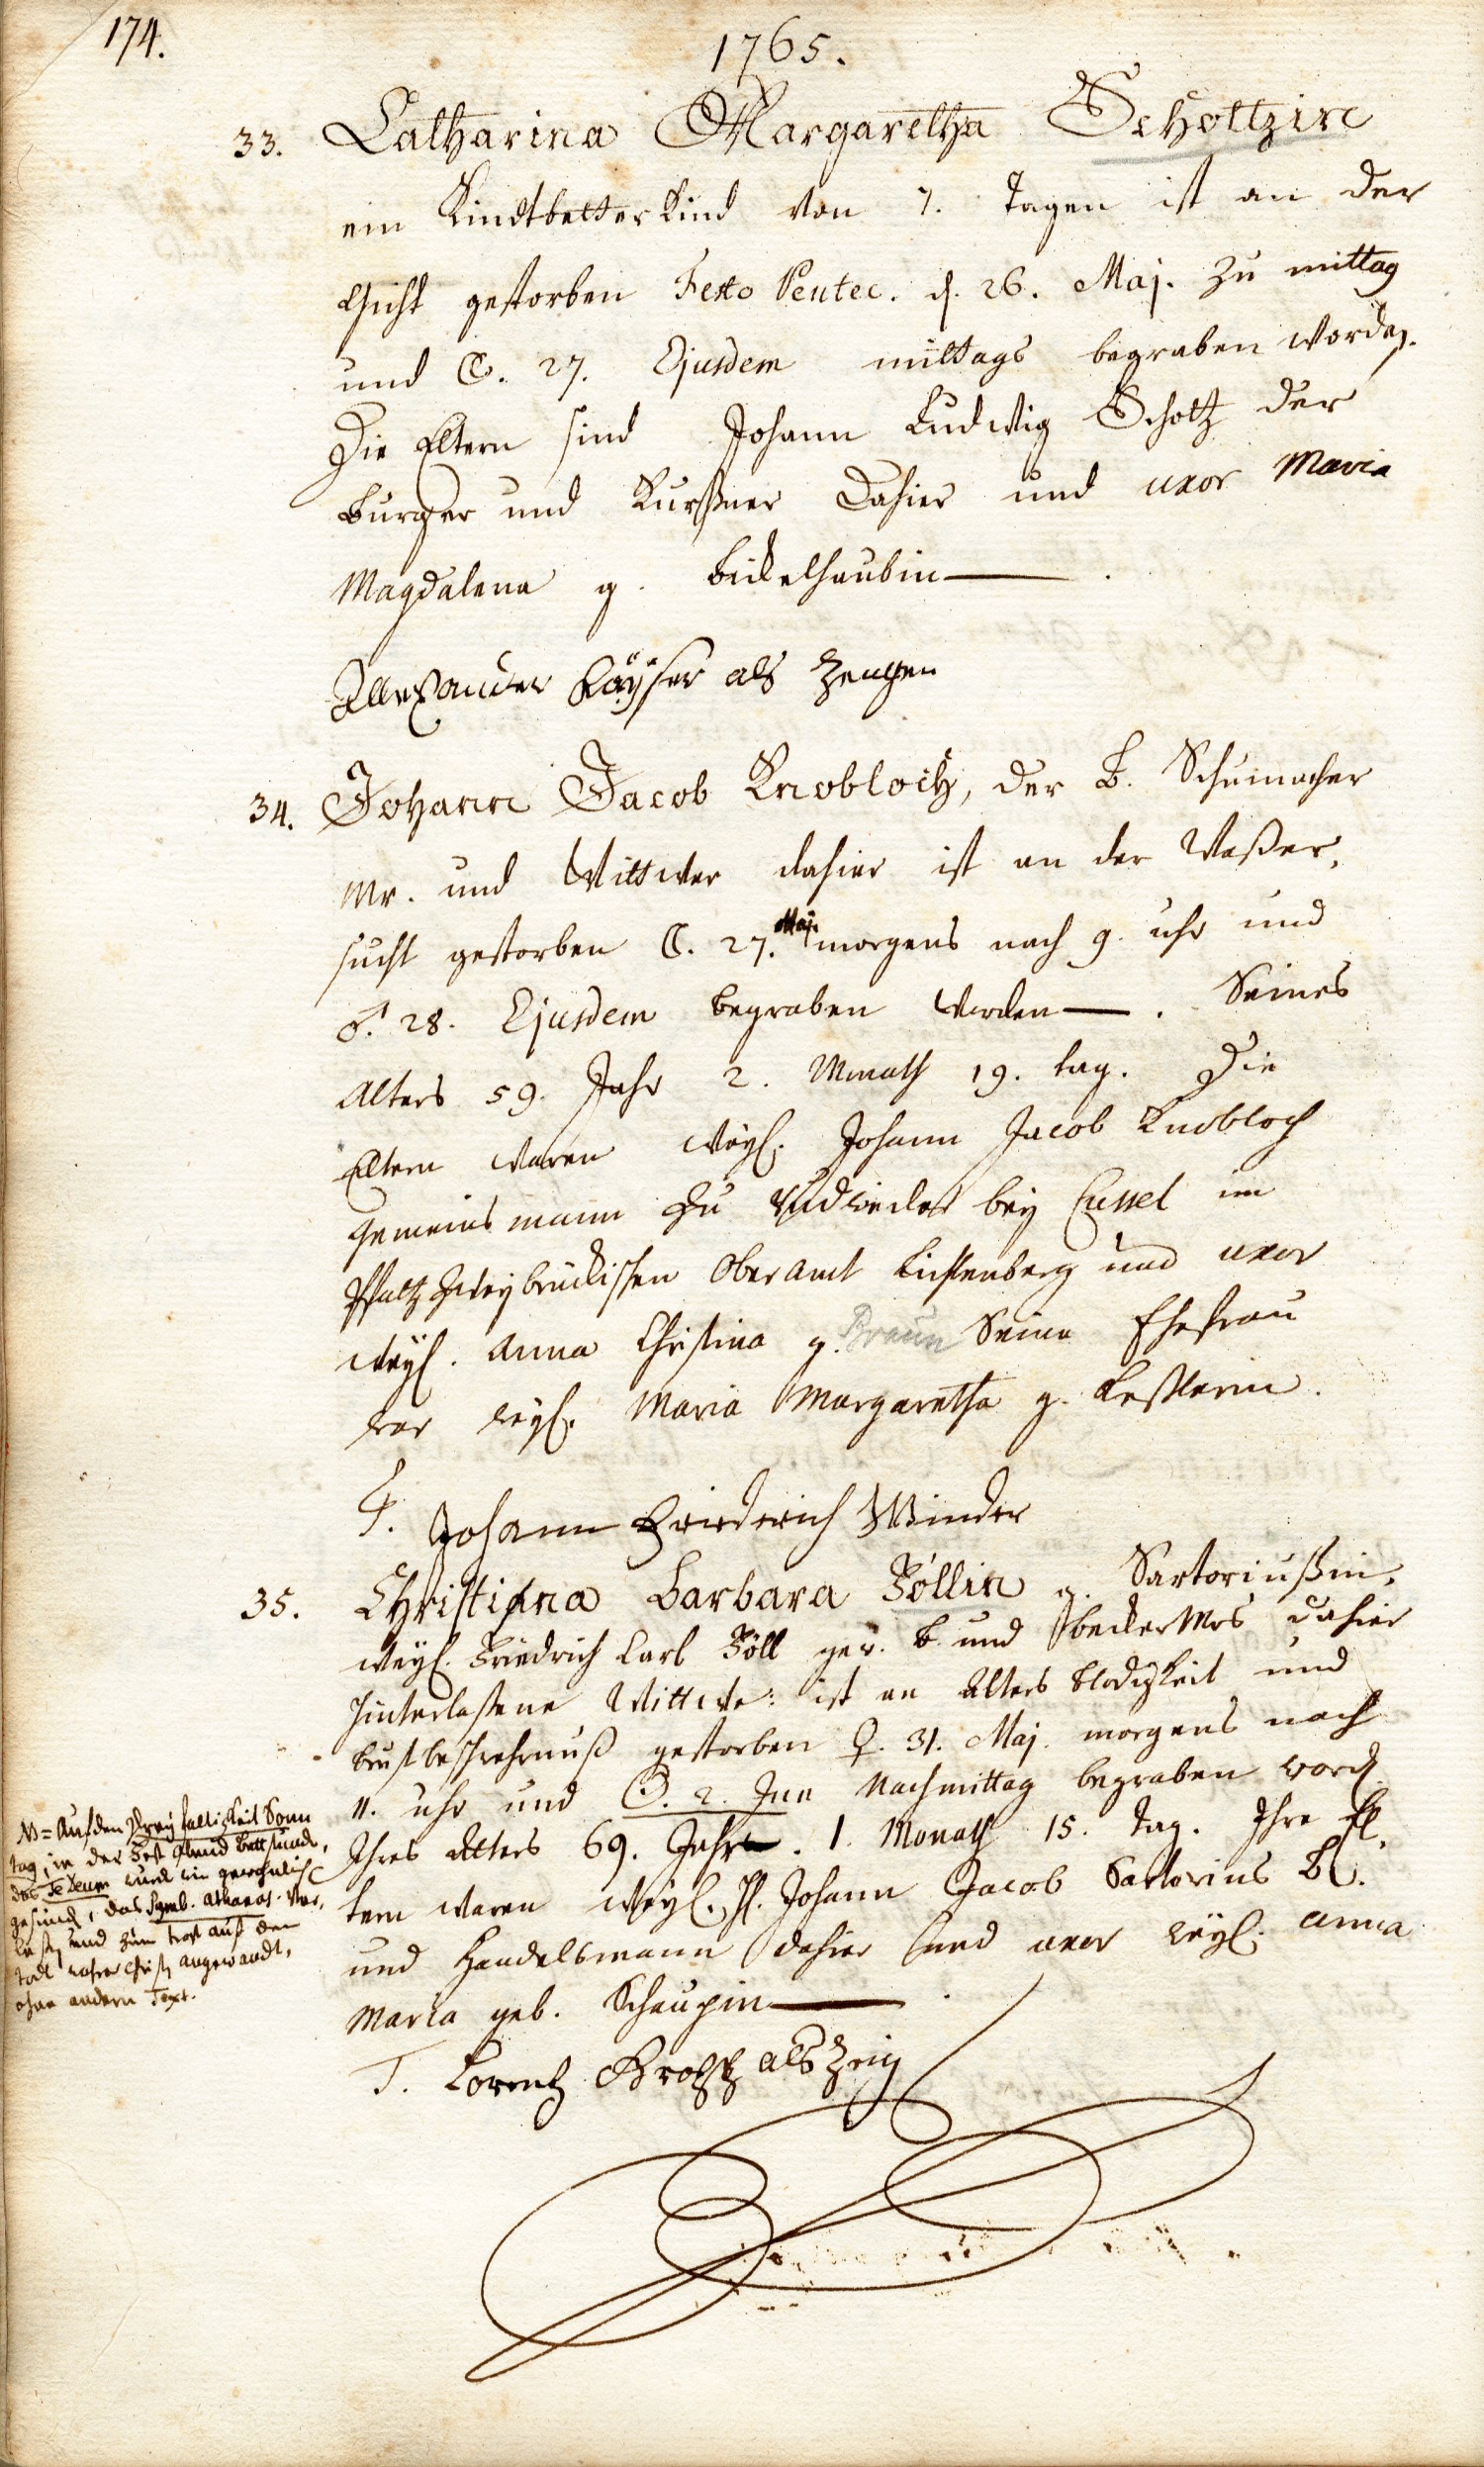 174.
1765.
33. Catharina Margaretha Schottzin
ein Kindtbetterkind von 7. Tagen ist an der
Gicht gestorben Festo Pentec. d. 26. Maj. zu mittag
und ☾. 27. Ejusdem mittags begraben worden.
Die Eltern sind Johann Ludwig Schotz der
burger und Kurßner dahier und uxor Maria
Magdalena g. Bickelhaubin —.
Allexander Käÿser als zeugen
34. Johann Jacob Knobloch, der B. Schumacher
Mr. und Wittwer dahier ist an der Waßer,
sucht gestorben ☾. 27. Maj. morgens nach 9. uhr und
♂. 28. Ejusdem begraben worden —. Seines
Alters 59. Jahr 2. Monath 19. tag. Die
Eltern waren weÿl. Johann Jacob Knobloch
Gemeinsmann zu beÿ Cussel im
Pfaltz Zweÿbrückischen Oberamt Lichtenberg und uxor
weÿl. Anna Christina g. Braun Seine Ehefrau
war weÿl. Maria Margaretha g. Keßlerin.
T. Johann Friederich Winder
35. Christina Barbara Föllin g. Sartoriußin,
weÿl. Friedrich Carl Föll gew. B. und beckerMrs dahier
hinterlaßene Wittwe: ist an Alters blodigkeit und
brustbeschwehrnuß gestorben ♀. 31. Maj. morgens nach
11. uhr und ☉. 2. Jun Nachmittag begraben word.
Ihres Alters 69. Jahr. 1. Monath 15. Tag. Ihre El,
tern waren weÿl. H. Johann Jacob Sartorius B.
und Handelsmann dahier und uxor weÿl. Anna
Maria geb. Schaupin —.
T. Lorentz als Zeug
NB = Auf den Dreÿfaltigkeit Sonn
tag, in der Fest Abend bettstund,
das Te Deum wurd wie gewohnlich
gesungen, das Symb. Athanas. ver,
leßen und zum trost auf den
todt wahrer Christen angewandt,
ohne andern Text.